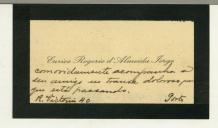 Eurico Rogerio d'Almeida Jorge
comovidamente acompanha o
seu amigo no transe doloroso por
que está passando.
R. Victoria 40 Porto